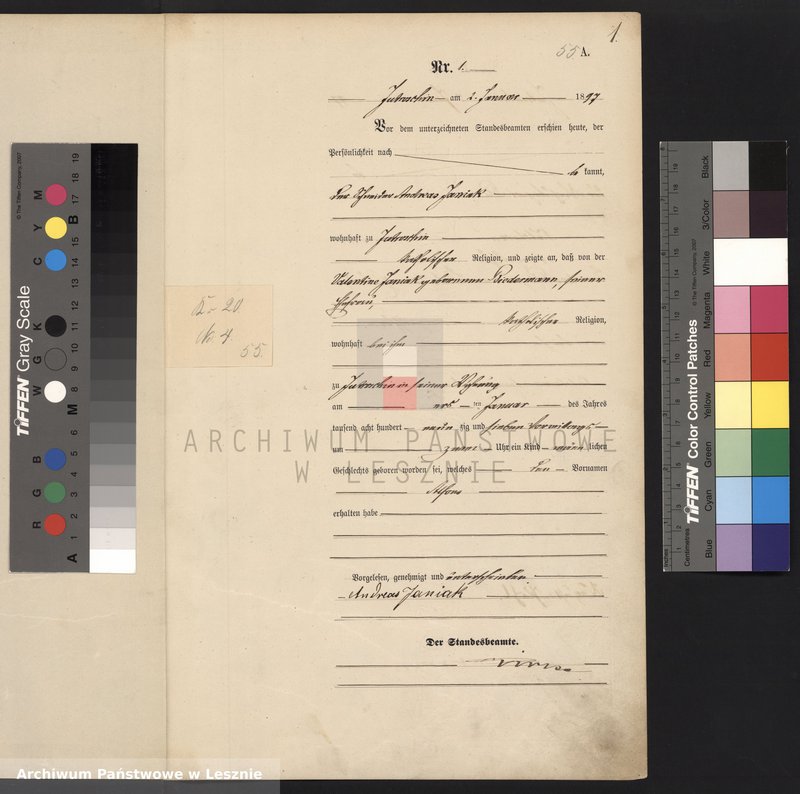 1.
55 A.
Nr. 1.
Jutroschin am 2. Januar 1897
Vor dem unterzeichneten Standesbeamten erschien heute, der
Persönlichkeit nach
be kannt,
der Schneider Andreas Janiak
wohnhaft zu Jutroschin
katholischer Religion, und zeigte an, daß von der
Valentine Janiak geborenen Biedermann, seiner
Ehefrau,
katholischer Religion,
wohnhaft bei ihm
zu Jutroschin in seiner Wohnung
am ersten Januar des Jahres
tausend acht hundert neun zig und sieben Vormittags
um zwei Uhr ein Kind männ lichen
Geschlechts geboren worden sei, welches den Vornamen
Alfons
erhalten habe
Vorgelesen, genehmigt und unterschrieben
Andreas Janiak
Der Standesbeamte.
No. 4.
55.
ARCHIWUM PAŃSTWOWE
W LESZNIE
Archiwum Państwowe w Lesznie
© The Tiffen Company, 2007
TIFFEN Gray Scale
R G B W G K C Y M
A 1 2 3 4 5 6 M 8 9 10 11 12 13 14 15 B 17 18 19
© The Tiffen Company, 2007
TIFFEN Color Control Patches
Inches
Centimetres
Blue Cyan Green Yellow Red Magenta White 3/Color Black